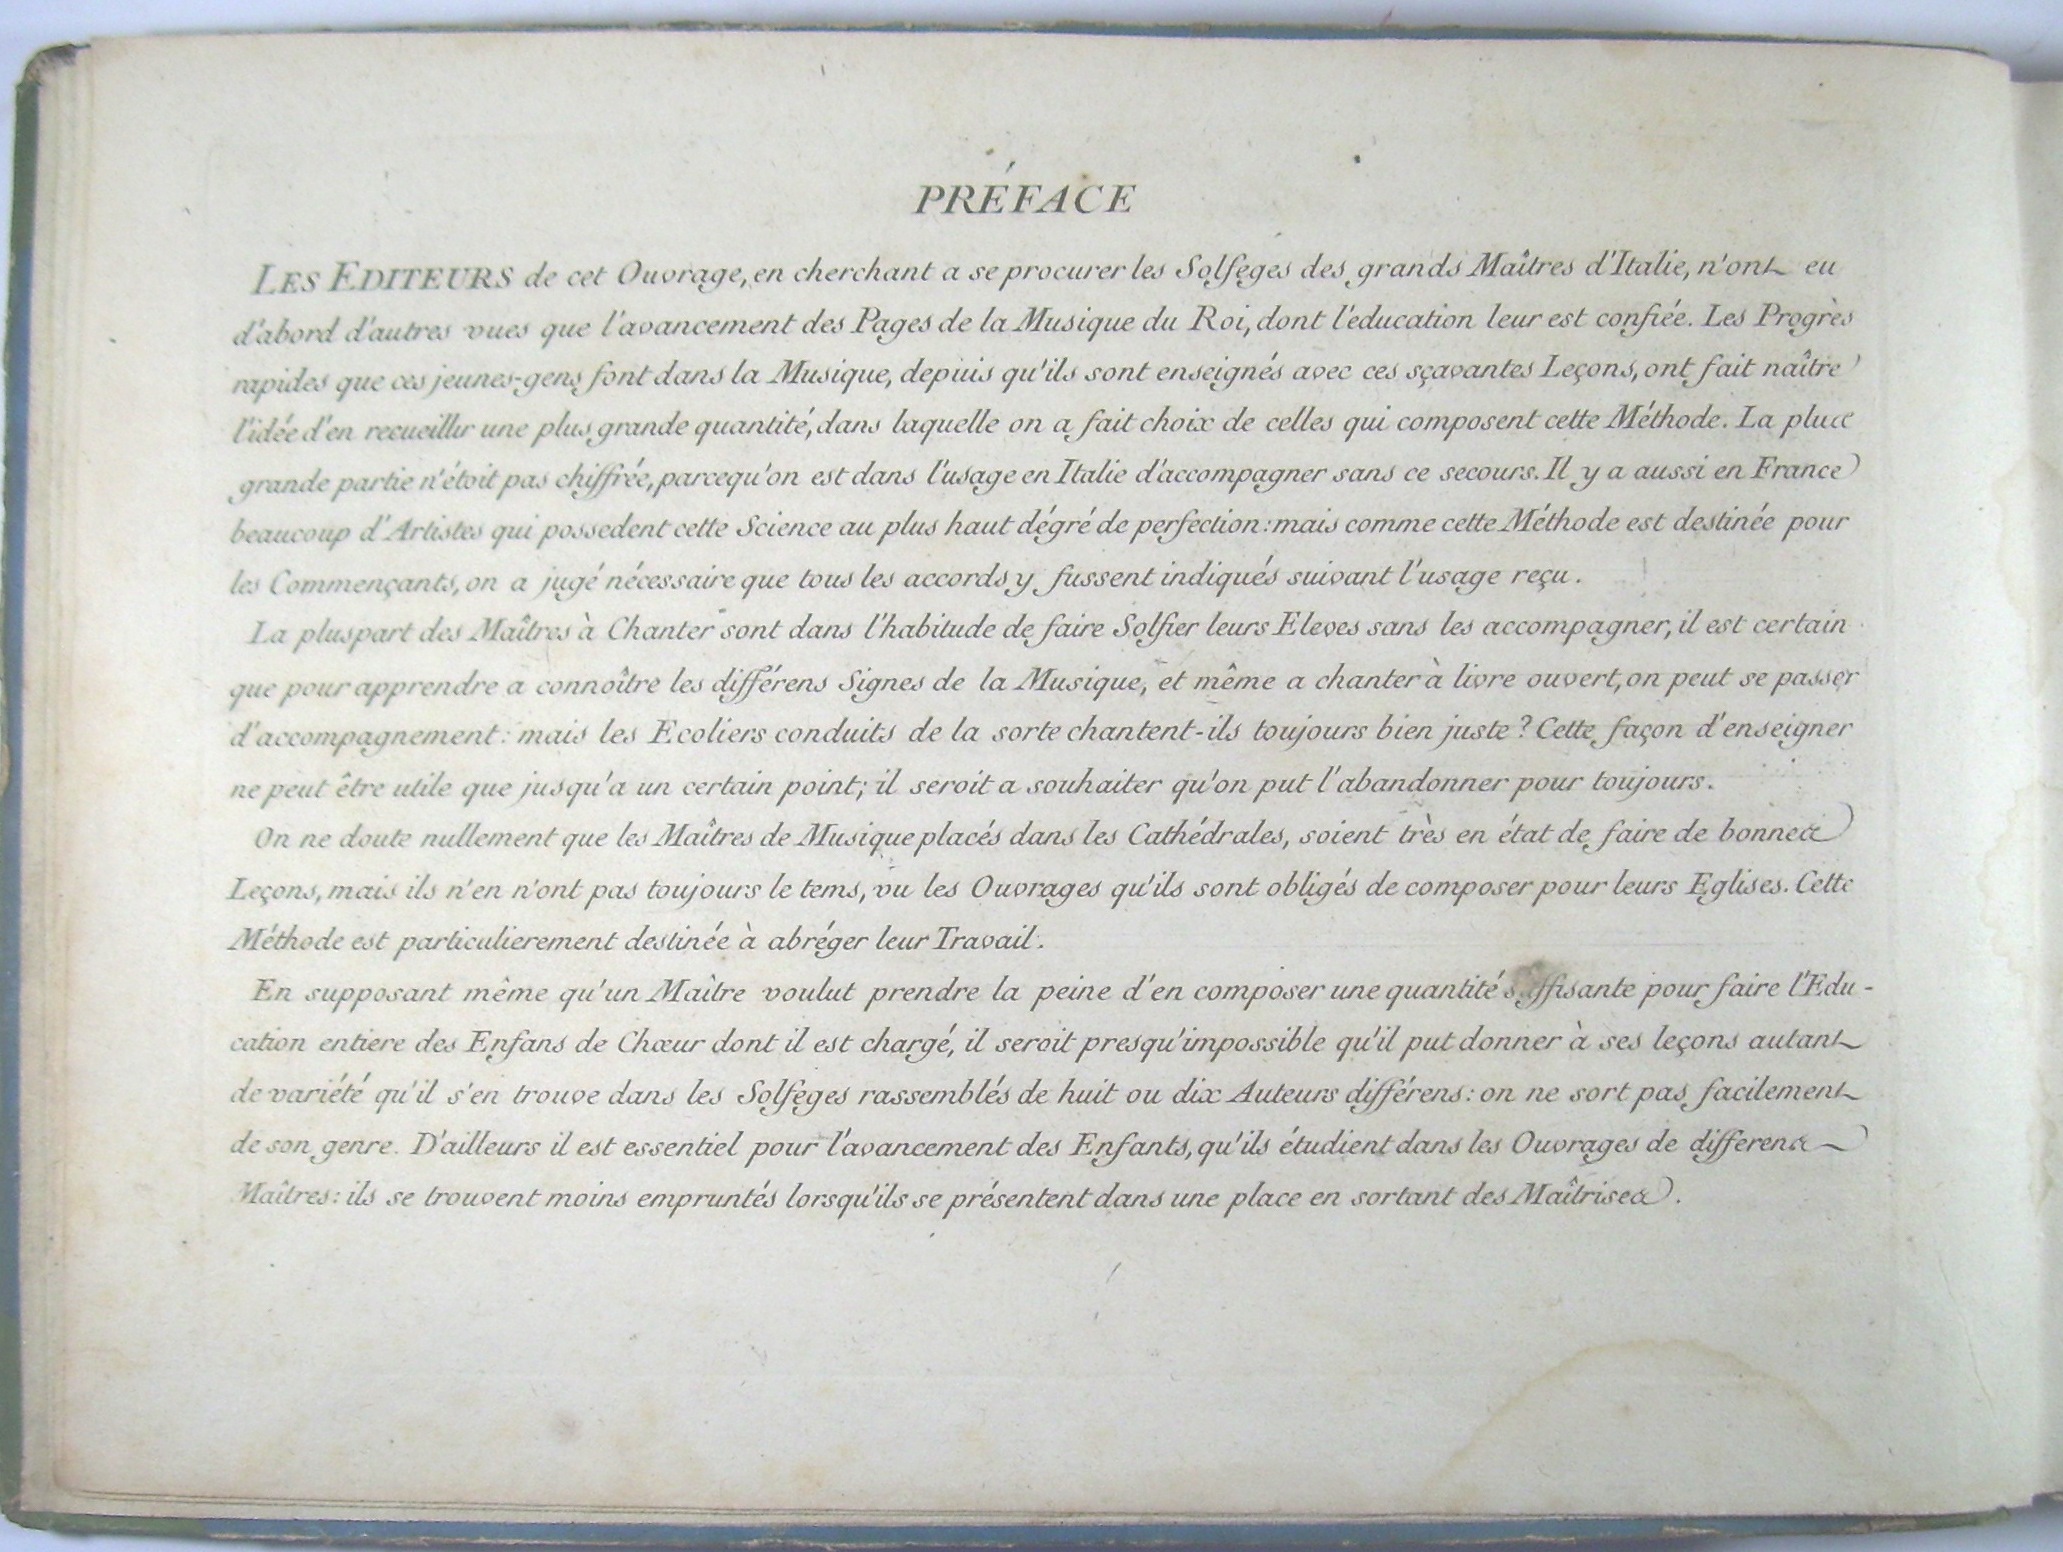 PRÉFACE
LES EDITEURS de cet Ouvrage, en cherchant a se procurer les Solfeges des grands Maîtres d'Italie, n'ont eu
d'abord d'autres vues que l'avancement des Pages de la Musique du Roi, dont l'éducation leur est confiée. Les Progrès
rapides que ces jeunes-gens font dans la Musique, depuis qu'ils sont enseignés avec ces sçavantes Leçons, ont fait naître
l'idée d'en recueillir une plus grande quantité, dans laquelle on a fait choix de celles qui composent cette Méthode. La plus
grande partie n'étoit pas chiffrée, parcequ'on est dans l'usage en Italie d'accompagner sans ce secours. Il y a aussi en France
beaucoup d'Artistes qui possedent cette Science au plus haut dégré de perfection: mais comme cette Méthode est destinée pour
les Commençants, on a jugé nécessaire que tous les accords y fussent indiqués suivant l'usage reçu.
La pluspart des Maîtres à Chanter sont dans l'habitude de faire Solfier leurs Eleves sans les accompagner, il est certain
que pour apprendre a connoître les différens Signes de la Musique, et même a chanter à livre ouvert, on peut se passer
d'accompagnement: mais les Ecoliers conduits de la sorte chantent-ils toujours bien juste? Cette façon d'enseigner
ne peut être utile que jusqu'a un certain point; il seroit a souhaiter qu'on put l'abandonner pour toujours.
On ne doute nullement que les Maîtres de Musique placés dans les Cathédrales, soient très en état de faire de bonnes
Leçons, mais ils n'en n'ont pas toujours le tems, vu les Ouvrages qu'ils sont obligés de composer pour leurs Eglises. Cette
Méthode est particulierement destinée à abréger leur Travail.
En supposant même qu'un Maître voulut prendre la peine d'en composer une quantité suffisante pour faire l'Edu-
cation entiere des Enfans de Chœur dont il est chargé, il seroit presqu'impossible qu'il put donner à ses leçons autant
de variété qu'il s'en trouve dans les Solfeges rassemblés de huit ou dix Auteurs différens: on ne sort pas facilement
de son genre. D'ailleurs il est essentiel pour l'avancement des Enfants, qu'ils étudient dans les Ouvrages de differens
Maîtres: ils se trouvent moins empruntés lorsqu'ils se présentent dans une place en sortant des Maîtrises.